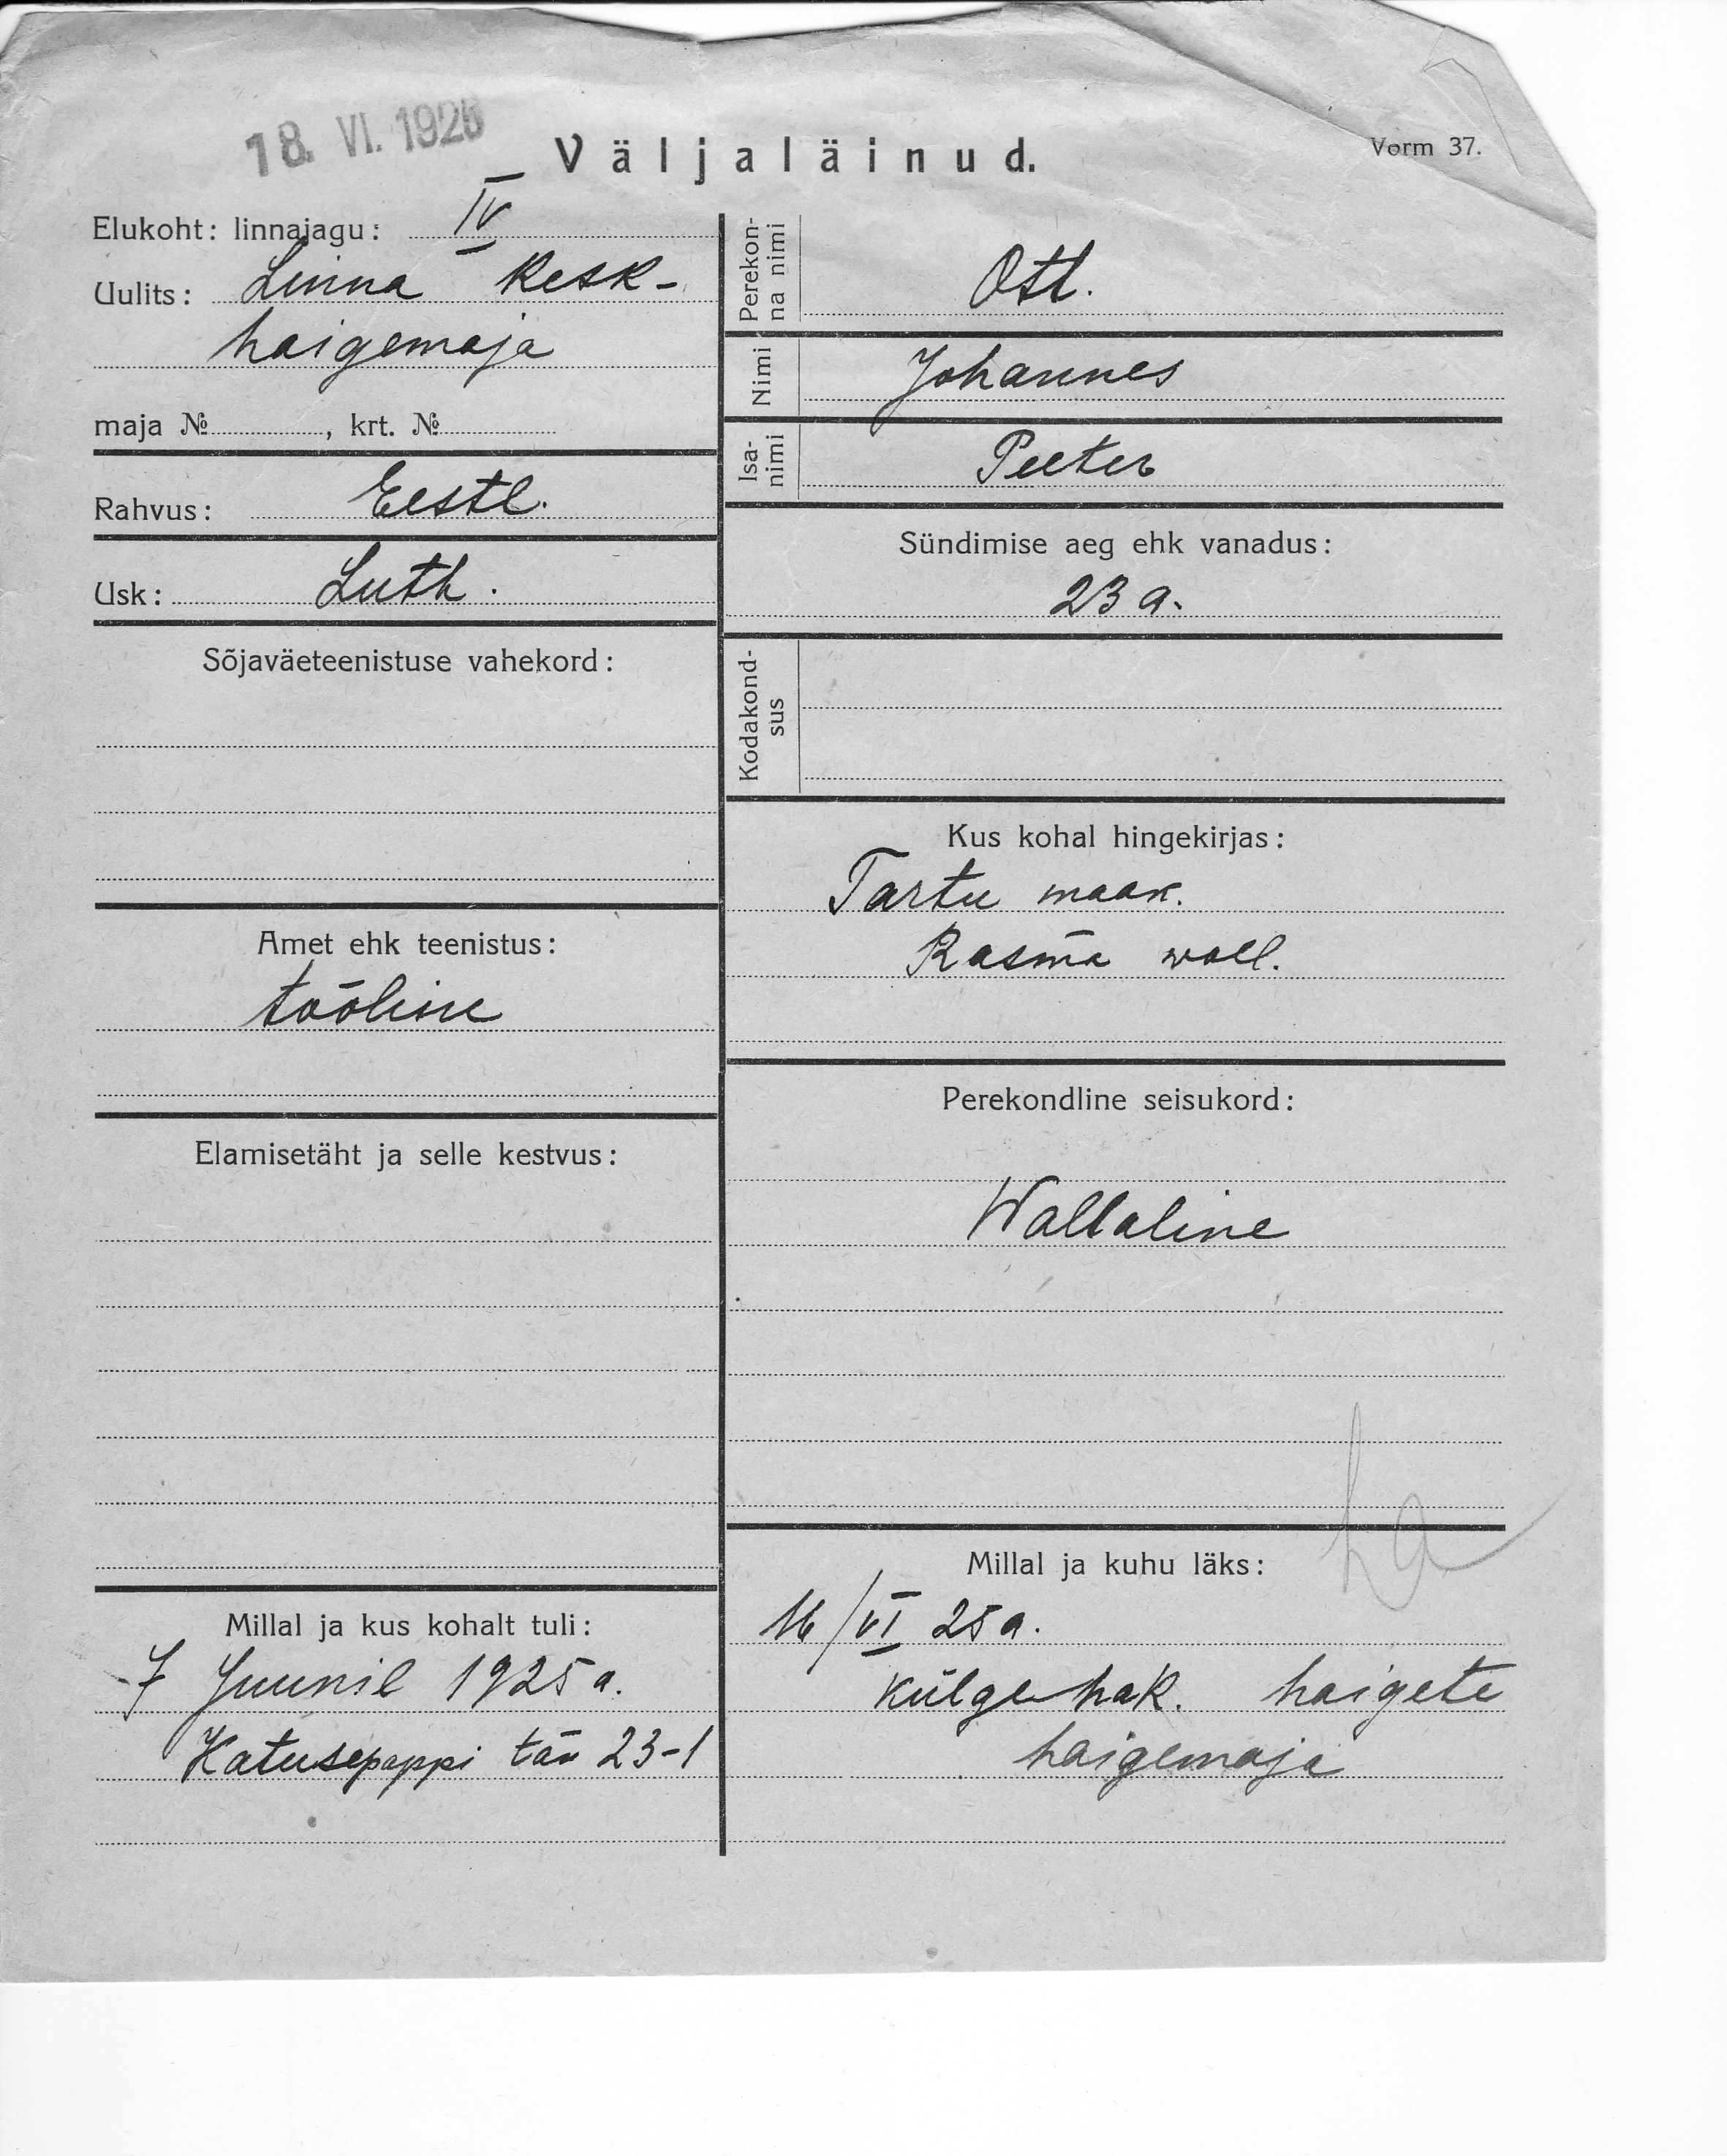 18. VI. 1925
Väljaläinud.
Vorm 37.
Elukoht: linnajagu: IV
Uulits: Linna Kesk-
haigemaja
maja №, krt. №
Rahvus: Eestl.
Usk: Luth.
Sõjaväeteenistuse vahekord:
Amet ehk teenistus:
tööline
Elamisetäht ja selle kestvus:
Millal ja kus kohalt tuli:
7 Juunil 1925 a.
Katusepappi tän 23-1
Perekon-
na nimi
Ott.
Nimi
Johannes
Isa-
nimi
Peeter
Sündimise aeg ehk vanadus:
23 a.
Kodakond-
sus
Kus kohal hingekirjas:
Tartu maak.
Rasina wall.
Perekondline seisukord:
Wallaline
Millal ja kuhu läks:
16/VI 25 a.
külgehak. haigete
haigemaja